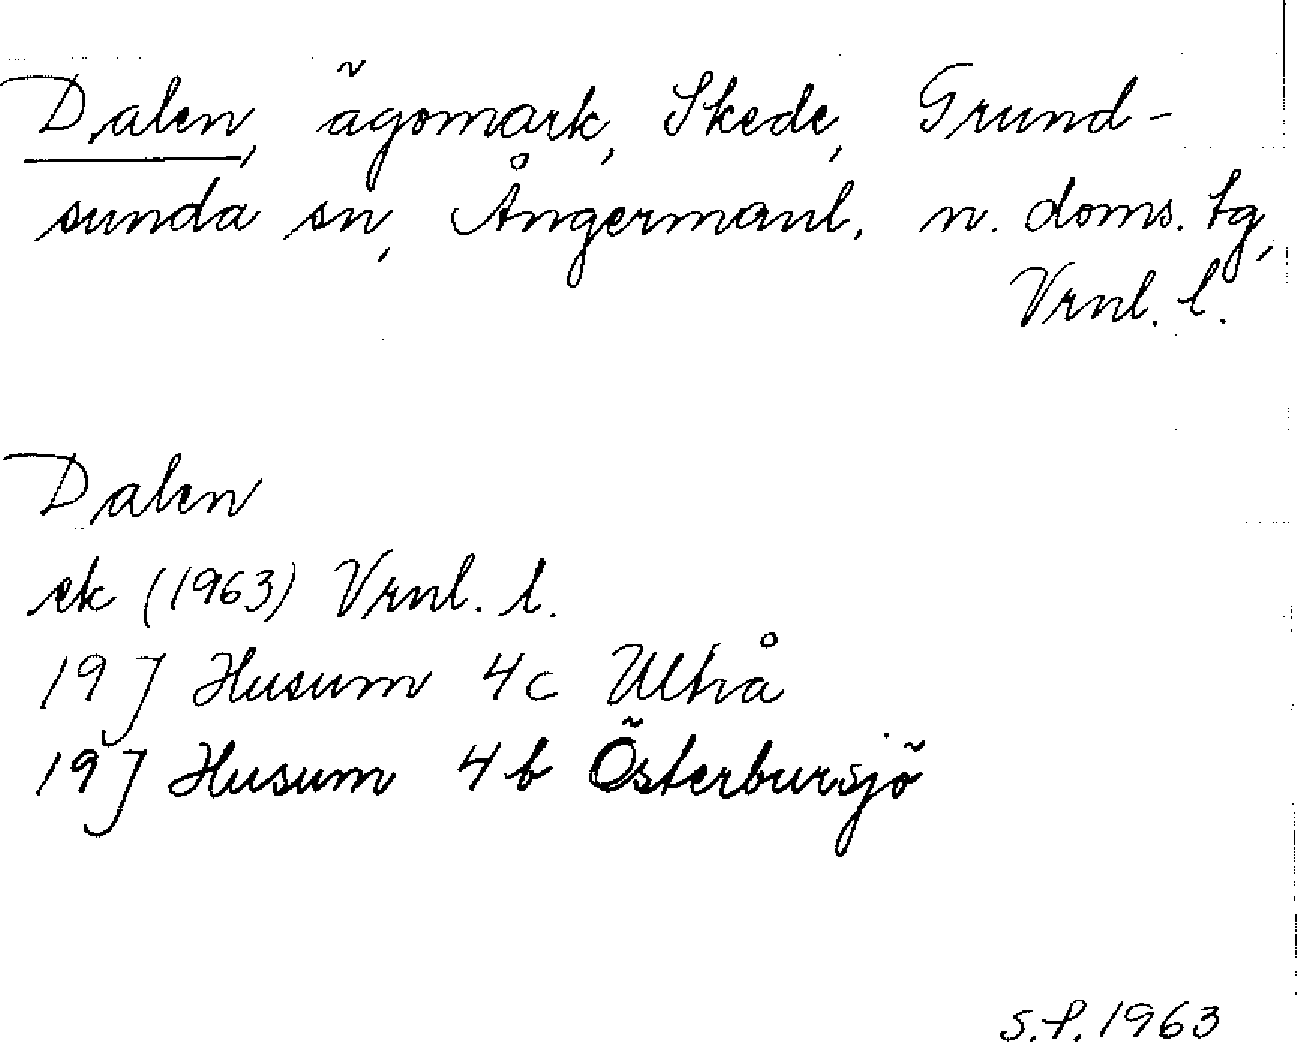 Dalen, ägomark, Skede, Grund-
sunda sn, Ångermanl. n. doms. tg,
Vrnl. l.
Dalen
ek (1963) Vrnl. l.
19 J Husum 4c Ulhå
19 J Husum 4b Österbursjö
S.P. 1963